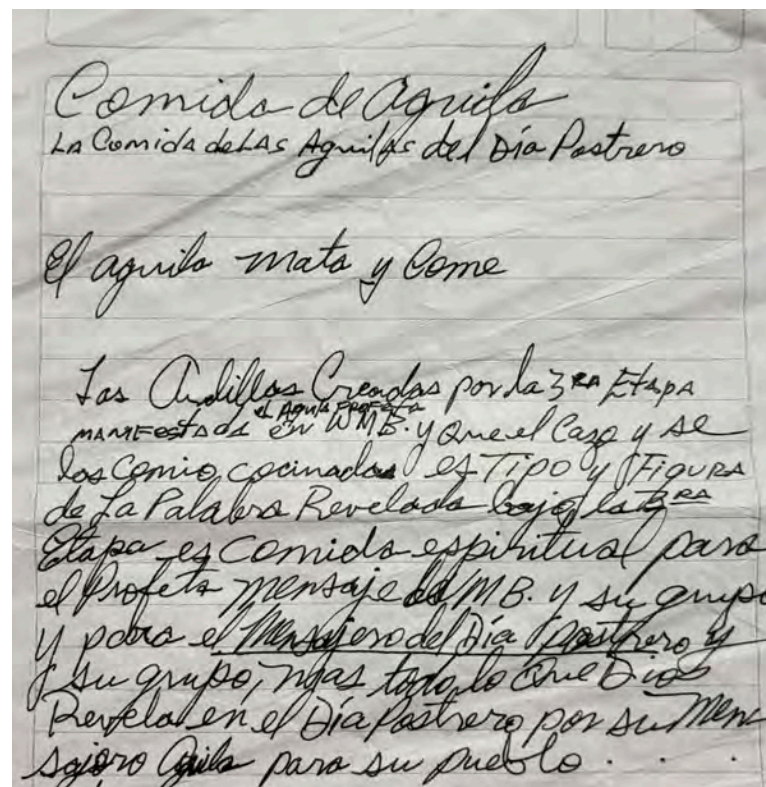 Comida de Aguila
La Comida de Las Aguilas del Día Postrero
El aguila mata y Come
Las Ardillas Creadas por la 3RA Etapa
el Aguila Profeta
MANIFESTADA en WMB. y que el Cazo y se
las Comio, cocinadas es Tipo y Figura
de La Palabra Revelada bajo la 3RA
Etapa es Comida espiritual para
el Profeta mensajero WMB. y su grupo
y para el Mensajero del Día Postrero y
y su grupo, mas todo lo Que Dios
Revela en el Día Postrero por su Men
sajero Aguila para su pueblo . . .